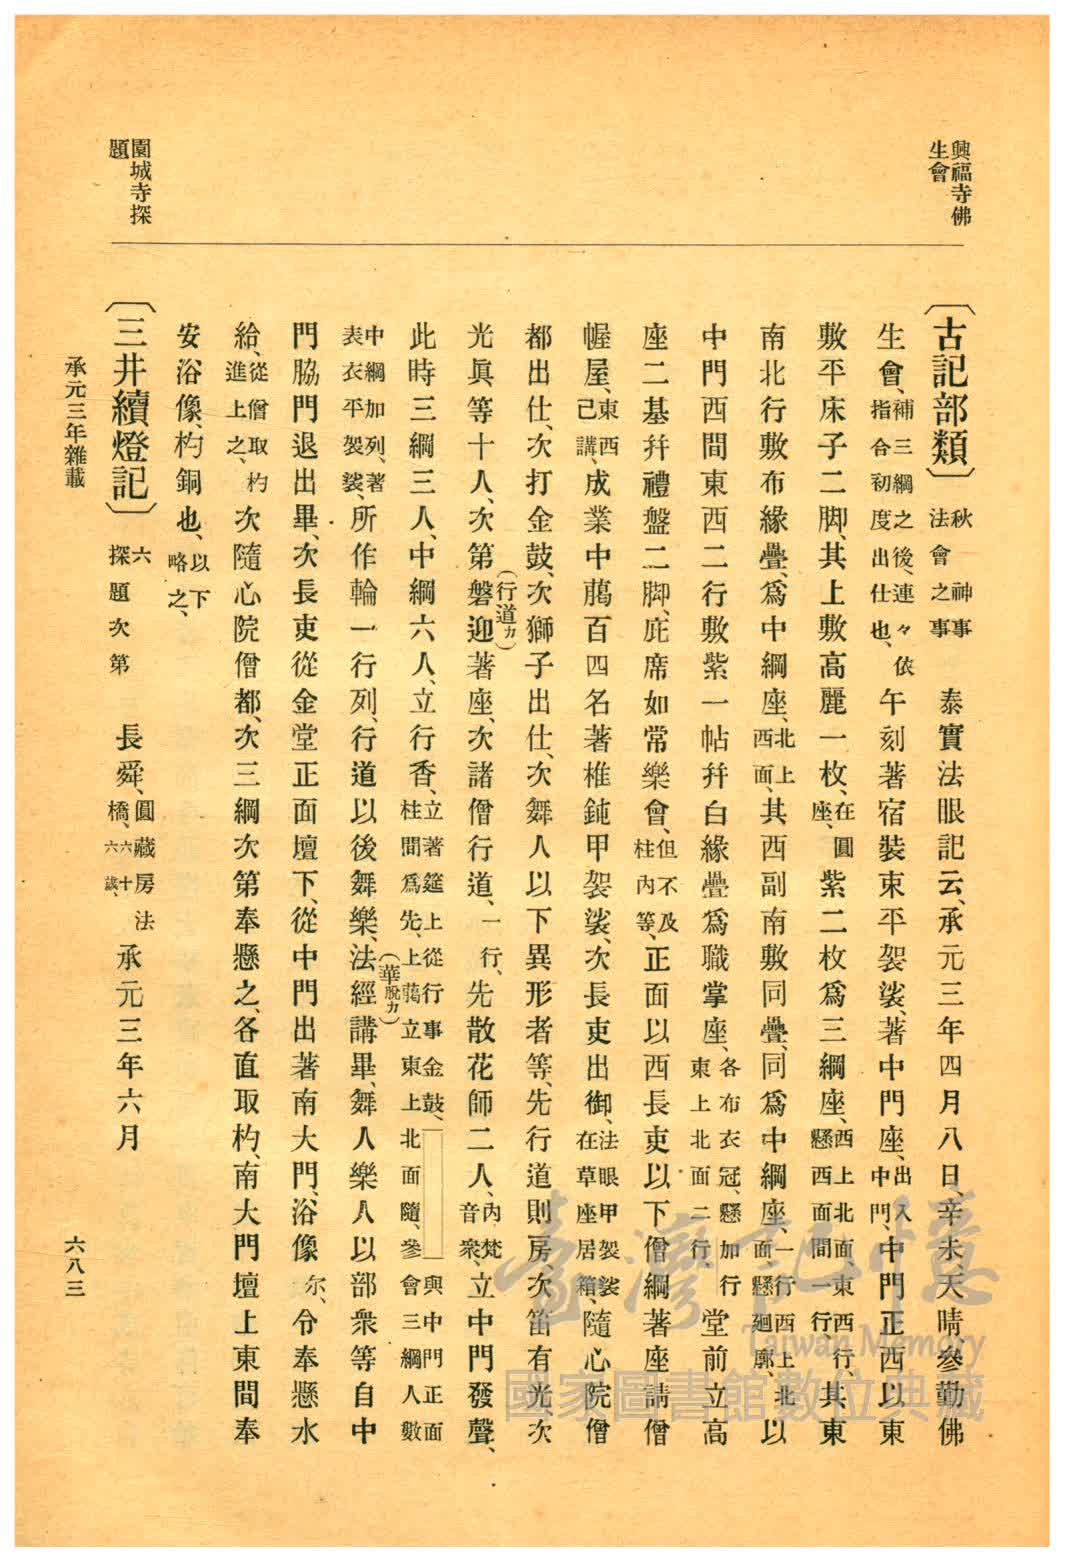 興福寺佛
生會
園城寺探
題
〔古記部類〕秋神事法會之事 泰實法眼記云、承元三年四月八日、辛未、天晴參勤佛
生會、補三綱之後、連々依指合初度出仕也、午刻著宿裝束平袈裟、著中門座、出入中門、中門正西以東
敷平床子二脚、其上敷高麗一枚、在圓座、紫二枚爲三綱座、西上北面、東西行、懸西面間一行、其東
南北行敷布緣疊、爲中綱座、北上西面、其西副南敷同疊、同爲中綱座、一行西上、北面懸廻廓、以
中門西間東西二行敷紫一帖幷白緣疊爲職掌座、各布衣冠、懸加行東上北面二行、堂前立高
座二基幷禮盤二脚、庇席如常樂會、但不及柱内等、正面以西長吏以下僧綱著座請僧
幄屋、東西已講、成業中﨟百四名著椎鈍甲袈裟、次長吏出御、法眼甲袈裟在草座居箱、隨心院僧
都出仕、次打金鼓、次獅子出仕、次舞人以下異形者等、先行道則房、次笛有光次
光眞等十人、次第磐迎(行道カ)著座、次諸僧行道、一行、先散花師二人、内梵音衆、立中門發聲、
此時三綱三人、中綱六人、立行香、立著筵上從行事金鼓、與中門正面柱間爲先、上﨟立東上北面隨、參會三綱人數
中綱加列、著表衣平袈裟、所作輪一行列、行道以後舞樂、法經(華脫カ)講畢、舞人樂人以部衆等自中
門脇門退出畢、次長吏從金堂正面壇下、從中門出著南大門、浴像尓、令奉懸水
給、從僧取杓進上之、次隨心院僧都、次三綱次第奉懸之、各直取杓、南大門壇上東間奉
安浴像、杓銅也、以下略之、
〔三井續燈記〕六探題次第 長舜、圓藏房法橋、六十六歲、承元三年六月
承元三年雜載
六八三
臺灣記憶
Taiwan Memory
國家圖書館數位典藏